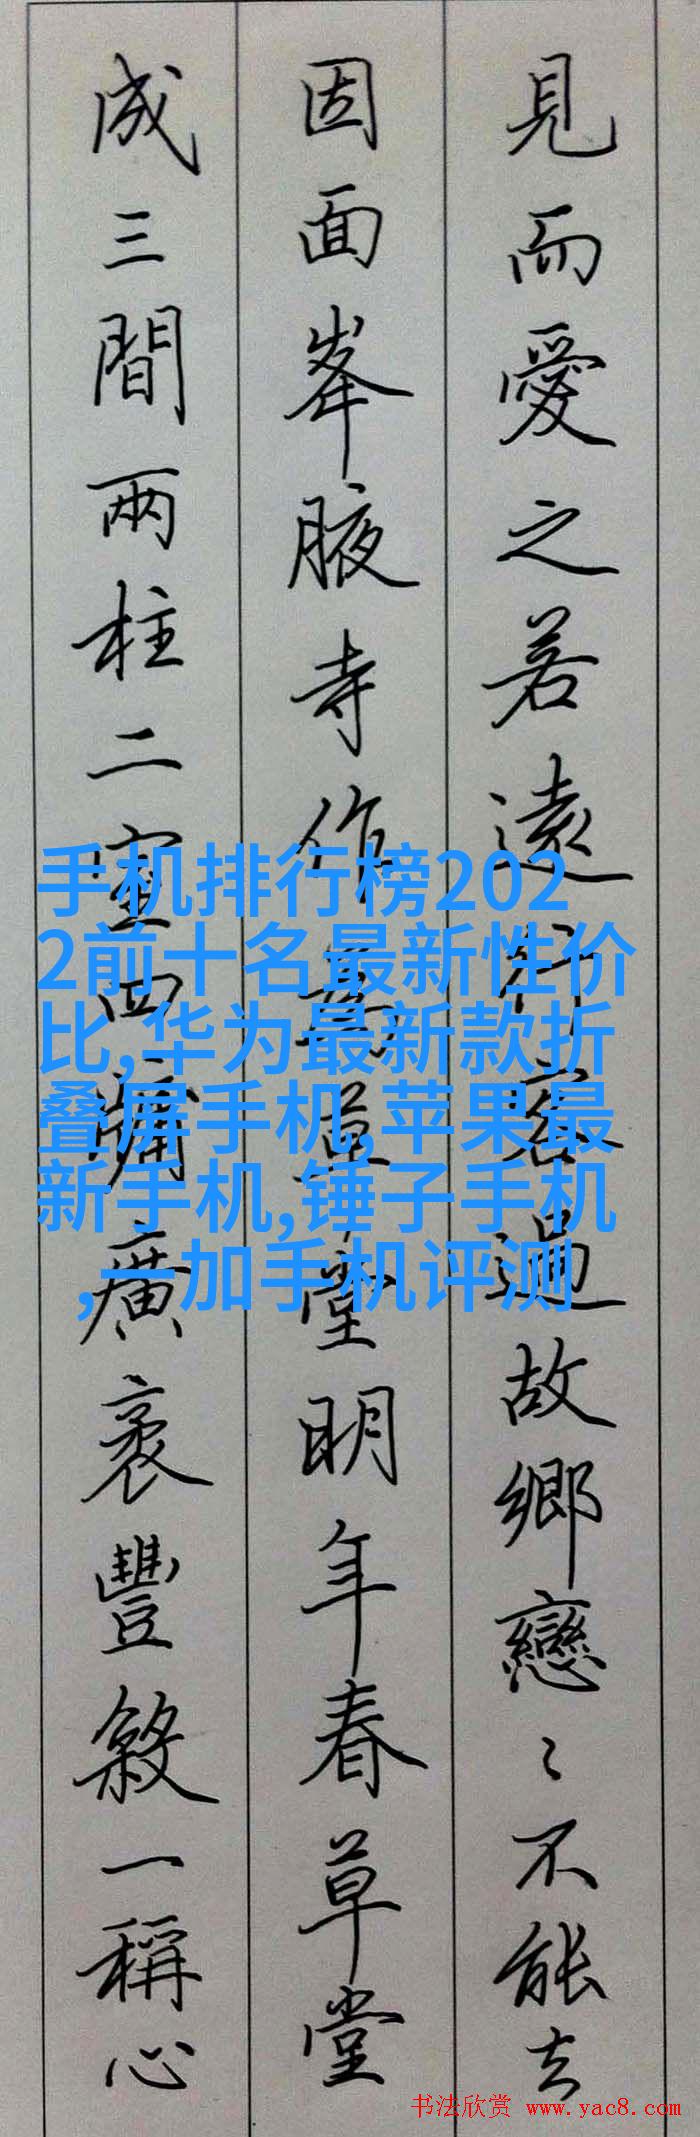 見而愛之若遠行客過故鄉戀〻不能去
因面峯腋寺作為草堂明年春草堂
成三間兩柱二室四牖廣袤豐殺一稱心
手机排行榜202
2前十名最新性价
比,华为最新款折
叠屏手机,苹果最
新手机,锤子手机
,一加手机评测
书法欣赏 www.yac8.com